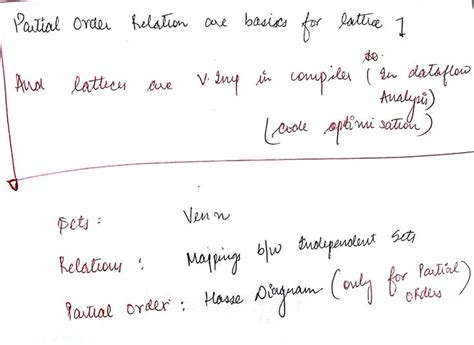 Partial Order Relation are basics for lattice ]
And lattices are V. Imp in compiler (In dataflow
Analysis)
(code optimisation)
Sets : Venn
Relations : Mappings b/w Independent Sets
Partial Order : Hasse Diagram (only for Partial
Orders)